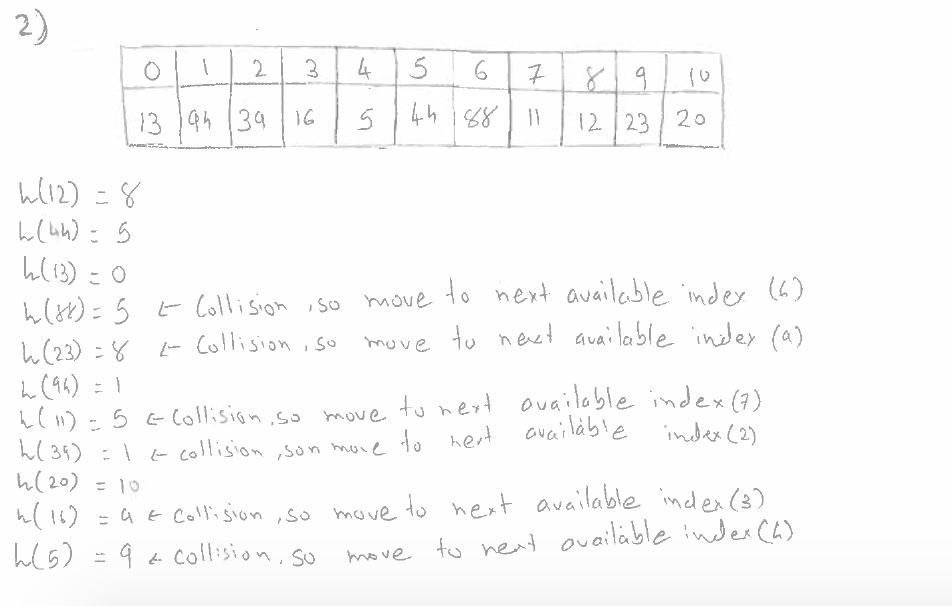 2)
0 1 2 3 4 5 6 7 8 9 10
13 94 39 16 5 44 88 11 12 23 20
h(12) = 8
h(44) = 5
h(13) = 0
h(88) = 5 ← Collision, so move to next available index (6)
h(23) = 8 ← Collision, so move to next available index (9)
h(94) = 1
h(11) = 5 ← Collision, so move to next available index (7)
h(39) = 1 ← collision, son move to next available index (2)
h(20) = 10
h(16) = 4 ← Collision, so move to next available index (3)
h(5) = 9 ← collision, so move to next available index (4)